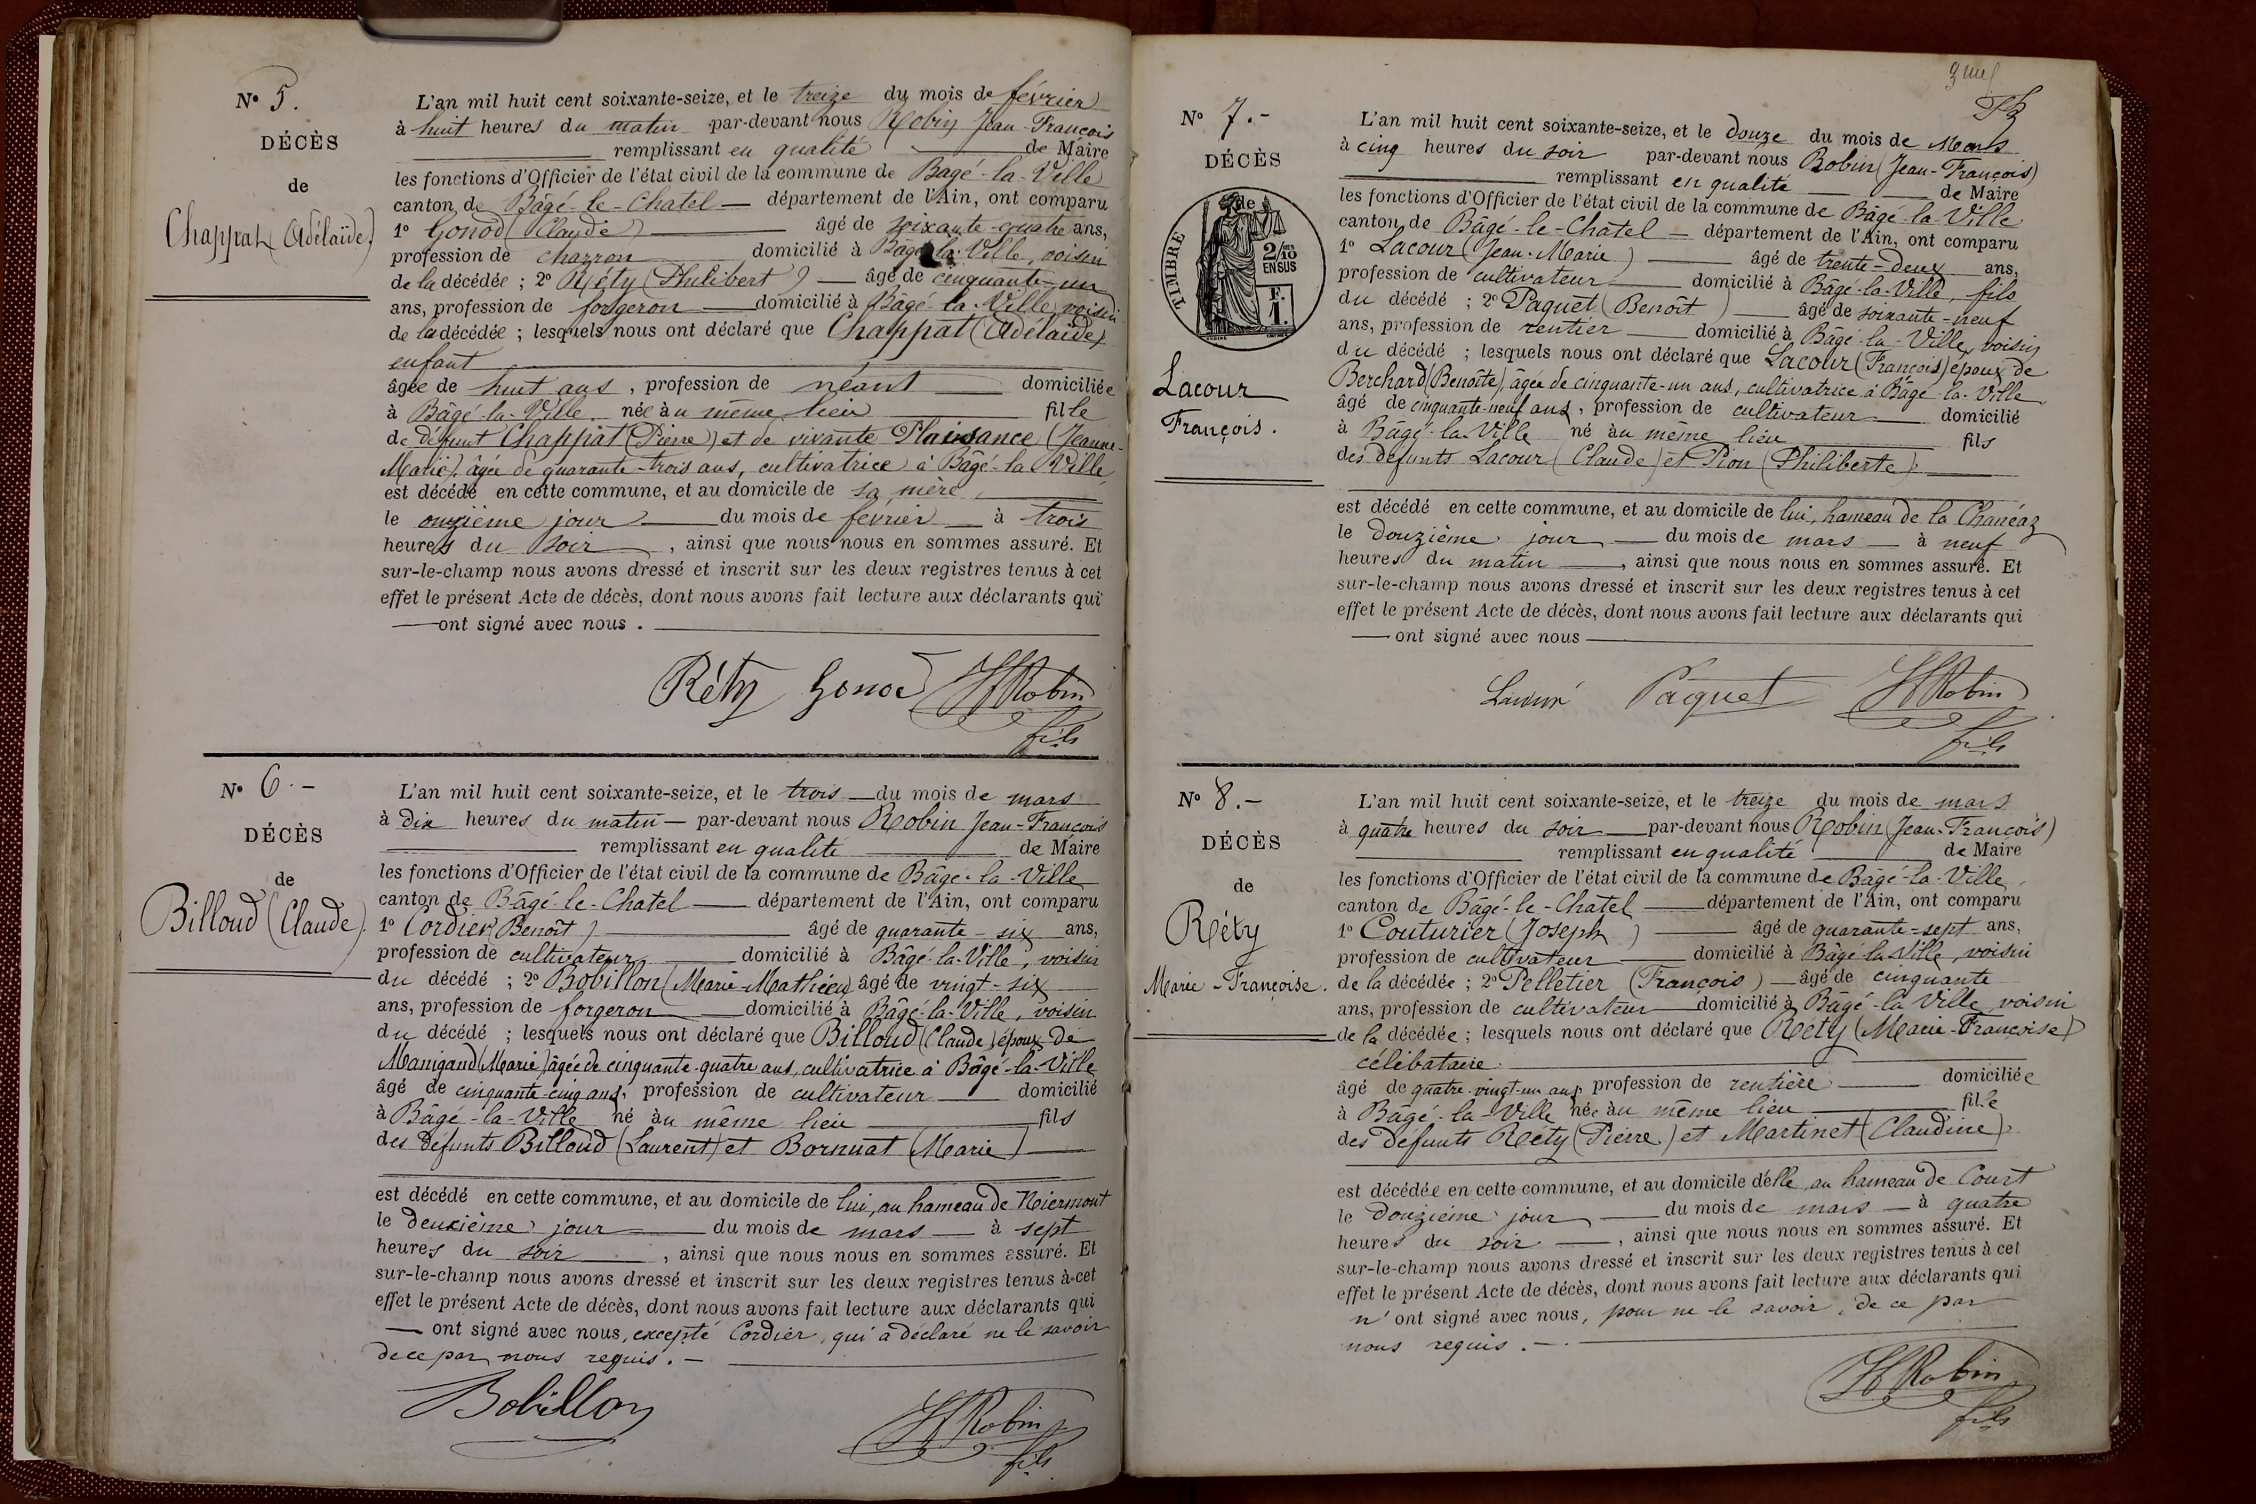 N° 5.
DÉCÈS
de
Chappat (Adélaïde)
L'an mil huit cent soixante-seize, et le treize du mois de février
à huit heures du matin par-devant nous Robin Jean-François
remplissant en qualité de Maire
les fonctions d'Officier de l'état civil de la commune de Bâgé-la-Ville
canton de Bâgé-le-Chatel département de l'Ain, ont comparu
1° Gonod (Claude) âgé de soixante-quatre ans,
profession de charron domicilié à Bâgé-la-Ville, voisin
de la décédée ; 2° Réty (Philibert) âgé de cinquante-un
ans, profession de forgeron domicilié à Bâgé-la-Ville, voisin
de la décédée ; lesquels nous ont déclaré que Chappat (Adélaïde)
enfant
âgée de huit ans, profession de néant domiciliée
à Bâgé-la-Ville née au même lieu fille
de défunt Chappat (Pierre) et de vivante Plaisance (Jeanne-
Marie), âgée de quarante-trois ans, cultivatrice à Bâgé-la-Ville
est décédé en cette commune, et au domicile de sa mère,
le onzième jour du mois de février à trois
heures du soir, ainsi que nous nous en sommes assuré. Et
sur-le-champ nous avons dressé et inscrit sur les deux registres tenus à cet
effet le présent Acte de décès, dont nous avons fait lecture aux déclarants qui
ont signé avec nous.
Réty Gonod Robin
fils
N° 6.-
DÉCÈS
de
Billoud (Claude)
L'an mil huit cent soixante-seize, et le trois du mois de mars
à dix heures du matin par-devant nous Robin Jean-François
remplissant en qualité de Maire
les fonctions d'Officier de l'état civil de la commune de Bâgé-la-Ville
canton de Bâgé-le-Chatel département de l'Ain, ont comparu
1° Cordier (Benoît) âgé de quarante-six ans,
profession de cultivateur domicilié à Bâgé-la-Ville, voisin
du décédé ; 2° Bobillon (Marie-Mathieu) âgé de vingt-six
ans, profession de forgeron domicilié à Bâgé-la-Ville, voisin
du décédé ; lesquels nous ont déclaré que Billoud (Claude) époux de
Manigand (Marie) âgée de cinquante-quatre ans, cultivatrice à Bâgé-la-Ville
âgé de cinquante-cinq ans, profession de cultivateur domicilié
à Bâgé-la-Ville né au même lieu fils
des défunts Billoud (Laurent) et Bornuat (Marie)
est décédé en cette commune, et au domicile de lui, au hameau de Niermont
le deuxième jour du mois de mars à sept
heures du soir, ainsi que nous nous en sommes assuré. Et
sur-le-champ nous avons dressé et inscrit sur les deux registres tenus à cet
effet le présent Acte de décès, dont nous avons fait lecture aux déclarants qui
ont signé avec nous, excepté Cordier, qui a déclaré ne le savoir
de ce par nous requis.-
Bobillon Robin
fils
N° 7.-
DÉCÈS
de
TIMBRE
2/10
EN SUS
F.
1.
Lacour
François.
L'an mil huit cent soixante-seize, et le douze du mois de Mars
à cinq heures du soir par-devant nous Robin (Jean-François)
remplissant en qualité de Maire
les fonctions d'Officier de l'état civil de la commune de Bâgé-la-Ville
canton de Bâgé-le-Châtel département de l'Ain, ont comparu
1° Lacour (Jean-Marie) âgé de trente-deux ans,
profession de cultivateur domicilié à Bâgé-la-Ville, fils
du décédé ; 2° Paquet (Benoît) âgé de soixante-neuf
ans, profession de rentier domicilié à Bâgé-la-Ville, voisin
du décédé ; lesquels nous ont déclaré que Lacour (François) époux de
Berchard (Benoîte), âgée de cinquante-un ans, cultivatrice à Bâgé-la-Ville
âgé de cinquante-neuf ans, profession de cultivateur domicilié
à Bâgé-la-Ville né au même lieu fils
des défunts Lacour (Claude) et Pion (Philiberte).
est décédé en cette commune, et au domicile de lui, hameau de la Chanéaz
le douzième jour du mois de mars à neuf
heures du matin, ainsi que nous nous en sommes assuré. Et
sur-le-champ nous avons dressé et inscrit sur les deux registres tenus à cet
effet le présent Acte de décès, dont nous avons fait lecture aux déclarants qui
ont signé avec nous
Lacour Paquet Robin
fils
N° 8.-
DÉCÈS
de
Réty
Marie-Françoise.
L'an mil huit cent soixante-seize, et le treize du mois de mars
à quatre heures du soir par-devant nous Robin (Jean-François)
remplissant en qualité de Maire
les fonctions d'Officier de l'état civil de la commune de Bâgé-la-Ville,
canton de Bâgé-le-Chatel département de l'Ain, ont comparu
1° Couturier (Joseph) âgé de quarante-sept ans,
profession de cultivateur domicilié à Bâgé-la-Ville, voisin
de la décédée ; 2° Pelletier (François) âgé de cinquante
ans, profession de cultivateur domicilié à Bâgé-la-Ville, voisin
de la décédée ; lesquels nous ont déclaré que Réty (Marie-Françoise)
célibataire
âgé de quatre-vingt-un ans, profession de rentière domiciliée
à Bâgé-la-Ville née au même lieu fille
des défunts Réty (Pierre) et Martinet (Claudine).
est décédée en cette commune, et au domicile d'elle, au hameau de Court
le douzième jour du mois de mars à quatre
heures du soir, ainsi que nous nous en sommes assuré. Et
sur-le-champ nous avons dressé et inscrit sur les deux registres tenus à cet
effet le présent Acte de décès, dont nous avons fait lecture aux déclarants qui
n'ont signé avec nous, pour ne le savoir, de ce par
nous requis.-
Robin
fils